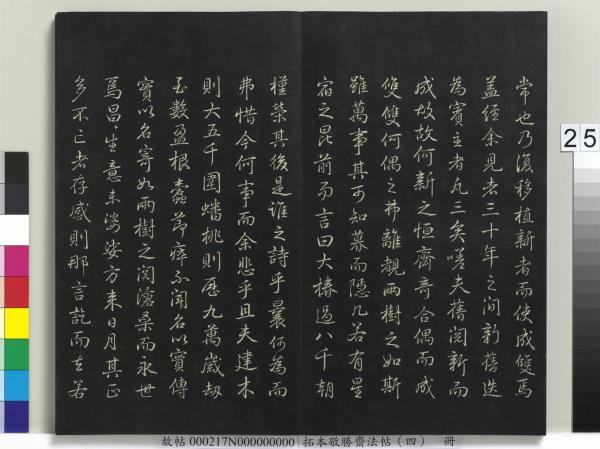 常也乃復移植新者而使成雙焉
蓋經余見者三十年之間新舊迭
為賓主者凡三矣嗟夫舊閱新而
成故故何新之恒齊奇合偶而咸
雙雙何偶之弗離覩兩樹之如斯
雖萬事其可知暮而隱几若有星
宿之昆前而言曰大椿過八千朝
槿榮其後是誰之詩乎曩何為而
弗惜今何事而余悲乎且夫建木
則大五千圍蟠桃則歷九萬歲劫
至數盈根蠹節瘁不聞名以實傳
實以名寄如兩樹之閱滄桑而永世
焉昌昌生意未婆娑方來日月其正
多不亡者存感則那言訖而去若
25
故帖 000217N000000000 拓本敬勝齋法帖（四） 冊